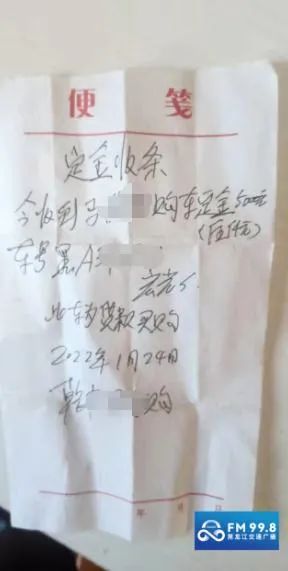 便 笺
定金收条
今收到于 购车定金500元
(伍佰元)
车号黑A
宏光S.
此车为贷款买购
2022年1月24日
乾 购
年 月 日
FM99.8
黑龙江交通广播